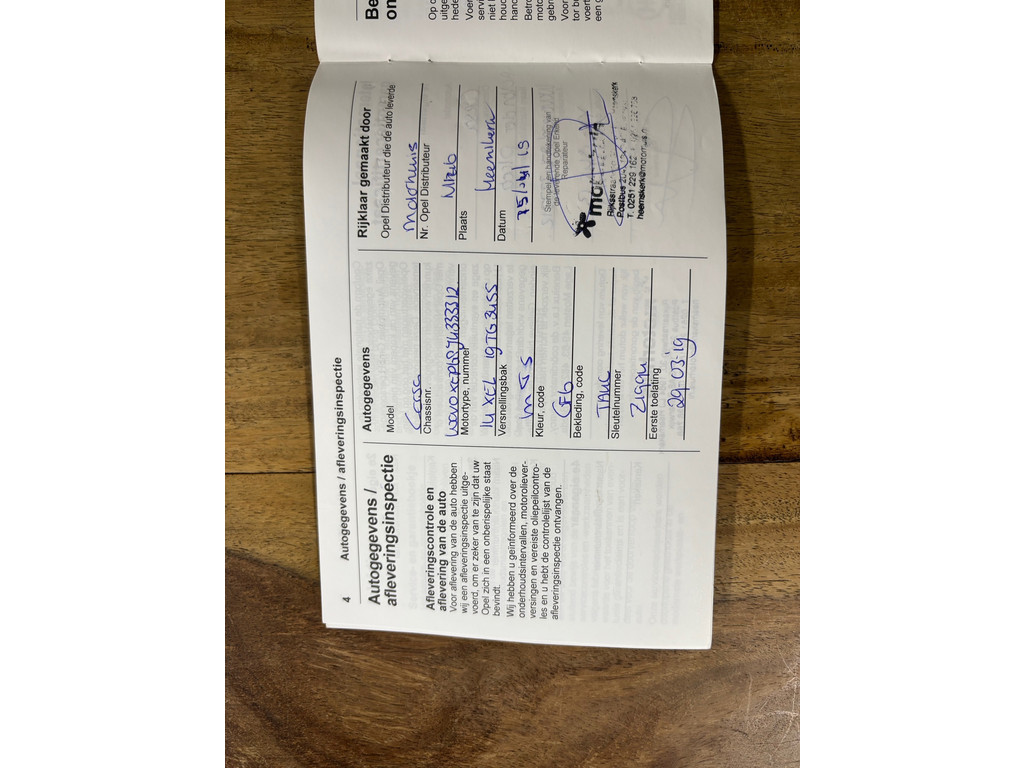 4 Autogegevens / afleveringsinspectie
Autogegevens /
afleveringsinspectie
Afleveringscontrole en
aflevering van de auto
Voor aflevering van de auto hebben
wij een afleveringsinspectie uitge-
voerd, om er zeker van te zijn dat uw
Opel zich in een onberispelijke staat
bevindt.
Wij hebben u geïnformeerd over de
onderhoudsintervallen, motoroliever-
versingen en vereiste oliepeilcontro-
les en u hebt de controlelijst van de
afleveringsinspectie ontvangen.
Autogegevens
Model
Corsa
Chassisnr.
Motortype, nummer
14 XEL 19TG3455
Versnellingsbak
Kleur, code
Bekleding, code
TAUC
Sleutelnummer
Eerste toelating
29-03-19
Rijklaar gemaakt door
Opel Distributeur die de auto leverde
Motorhuis
Nr. Opel Distributeur
Plaats
Heemskerk
Datum
Stempel en handtekening van
de leverende Opel Erkend
Reparateur
Postbus
T. 0251 229
Be
on
Op